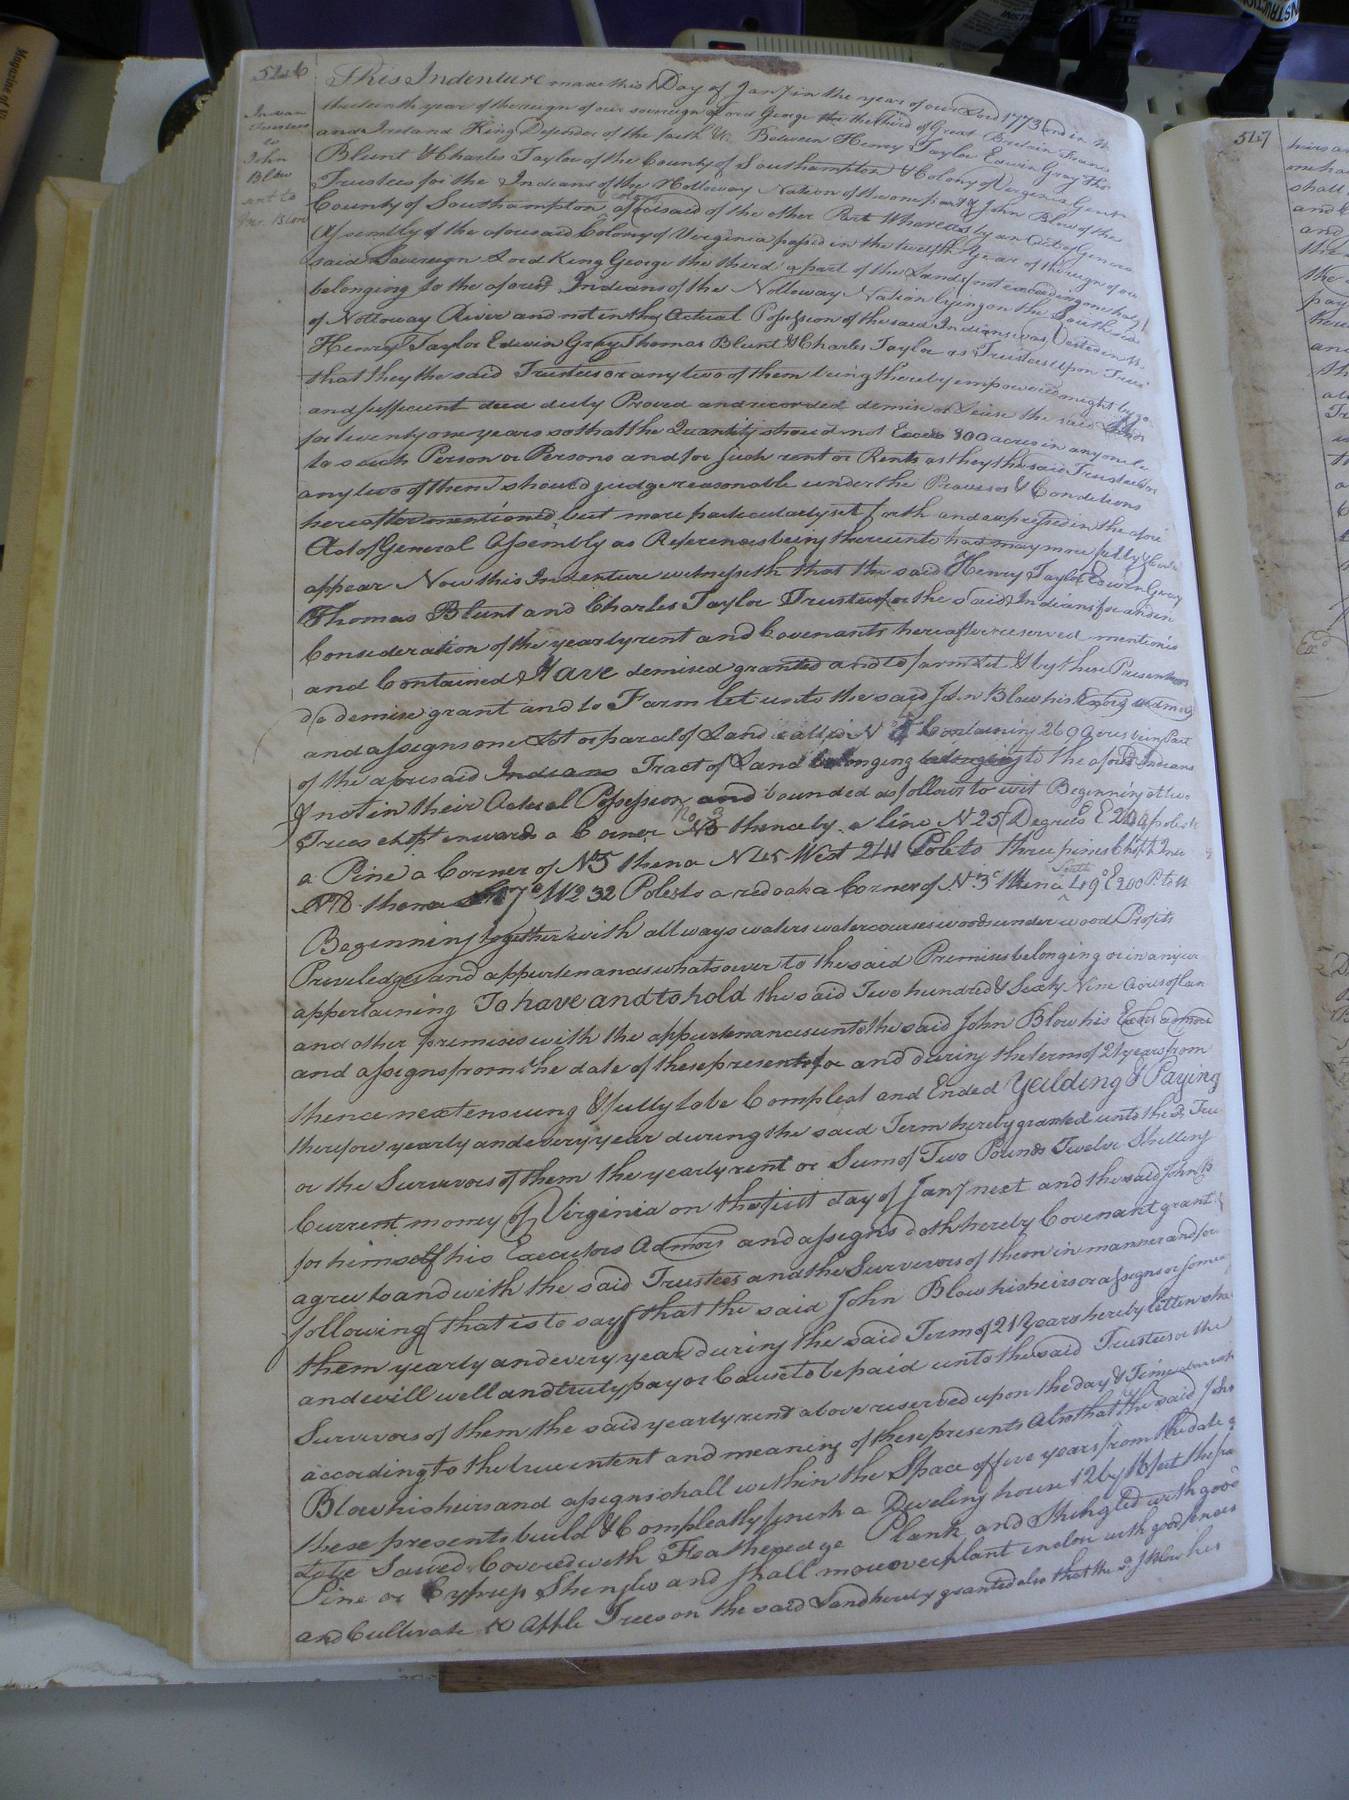 526
Indian
Trustees
to
John
Blow
This Indenture made this Day of Jany in the year of our Lord 1773 and in the
thirteenth year of the reign of our sovereign Lord George the the third of Great Britain France
and Ireland King Defender of the faith &c. Between Henry Taylor Edwin Gray Tho.s
Blunt & Charles Taylor of the County of Southampton & Colony of Virginia Gent
Trustees for the Indians of the Nottoway Nation of the one part & John Blow of the
County of Southampton aforesaid of the other Part Whereas by an Act of General
Assembly of the aforesaid Colony of Virginia passed in the twelfth Year of the reign of our
said Sovereign Lord King George the third a part of the Lands (not exceeding one half)
belonging to the aforesd Indians of the Nottoway Nation lying on the South side
of Nottoway River and not in they Actual Possession of the said Indians was Vested in the
Henry Taylor Edwin Gray Thomas Blunt & Charles Taylor as Trustees upon Trust
that they the said Trustees or any two of them being thereby empowered might by go
and sufficient deed duly Proved and recorded demise or Lease the said Lands
for twenty one years so that the Quantity should not Exceed 300 acres in any one le
to such Person or Persons and for such rent or Rents as they the said Trustees or
any two of them should judge reasonable under the Provisos & Conditions
hereafter mentioned, but more particularly set forth and expressed in the afore
Act of General Assembly as References being thereunto had may more fully &
appear Now this Indenture witnesseth that the said Henry Taylor Edwin Gray
Thomas Blunt and Charles Taylor Trustees for the said Indians for and in
Consideration of the yearly rent and Covenants hereafter reserved mentioned
and Contained Have demised granted and to farm Let & by these Presents
do demise grant and to Farm let unto the said John Blow his Exors admors
and assigns one Lot or parcel of Land called N Containing 269 Acres being Part
of the aforesaid Indians Tract of Land belonging belonging to the aforesd Indians
& not in their Actual Possession and bounded as follows to wit Beginning at two
Trees chopt inwards a Corner No 3 thence by a line N 25 Degrees E 204 poles to
a Pine a Corner of No5 thence N 45 West 244 Pole to three pines chopt
No8 thence 7° W 232 Poles to a red oak a Corner of No 3 thence South 49° E 200 P. to the
Beginning together with all ways waters watercourses woods under wood Profits
Priviledges and appurtenances whatsoever to the said Premises belonging or in any
appertaining To have and to hold the said Two hundred & Sixty Nine Acres of Lan
and other premises with the appurtenances unto the said John Blow his Exors admors
and assigns from the date of these presents for and during the term of 21 years from
thence next ensuing & fully to be Compleat and Ended Yeilding & Paying
therefore yearly and every year during the said Term hereby granted unto the sd Trus
or the Survivors of them the yearly rent or Sum of Two Pounds Twelve Shillings
Current money of Virginia on the first day of Jany next and the said John B
for himself his Executors Admors and assigns doth hereby Covenant grant &
agree to and with the said Trustees and the Survivors of them in manner and for
following (that is to say) that the said John Blow his heirs or assigns or some
them yearly and every year during the said Term of 21 Years hereby letten sha
and will well and truly pay or Cause to be paid unto the said Trustees or the
Survivors of them the said yearly rent above reserved upon the day & Time
according to the true intent and meaning of these presents Also that the said John
Blow his heirs and assigns shall within the Space of five years from the date o
these presents build & Compleatly finish a Dweling house 12 by 16 feet the fra
Sawed Covered with Featheredge Plank and Shingled with good
Pine or Cypress Shingles and shall moreover plant inclose with good fences
and Cultivate Apple Trees on the said Land hereby granted also that the sd J Blow his
527